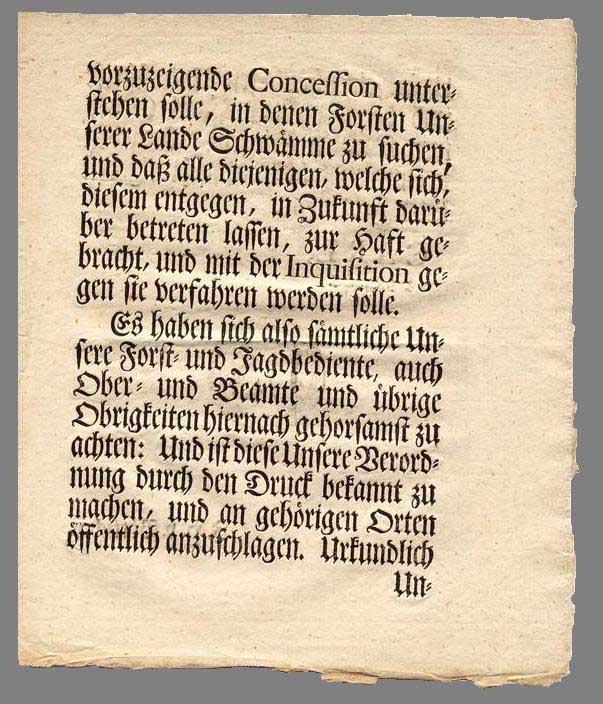 vorzuzeigende Concession unter-
stehen solle, in denen Forsten Un-
serer Lande Schwämme zu suchen,
und daß alle diejenigen, welche sich,
diesem entgegen, in Zukunft darü-
ber betreten lassen, zur Haft ge-
bracht, und mit der Inquisition ge-
gen sie verfahren werden solle.
Es haben sich also sämtliche Un-
sere Forst- und Jagdbediente, auch
Ober- und Beamte und übrige
Obrigkeiten hiernach gehorsamst zu
achten: Und ist diese Unsere Verord-
nung durch den Druck bekannt zu
machen, und an gehörigen Orten
öffentlich anzuschlagen. Urkundlich
Un-